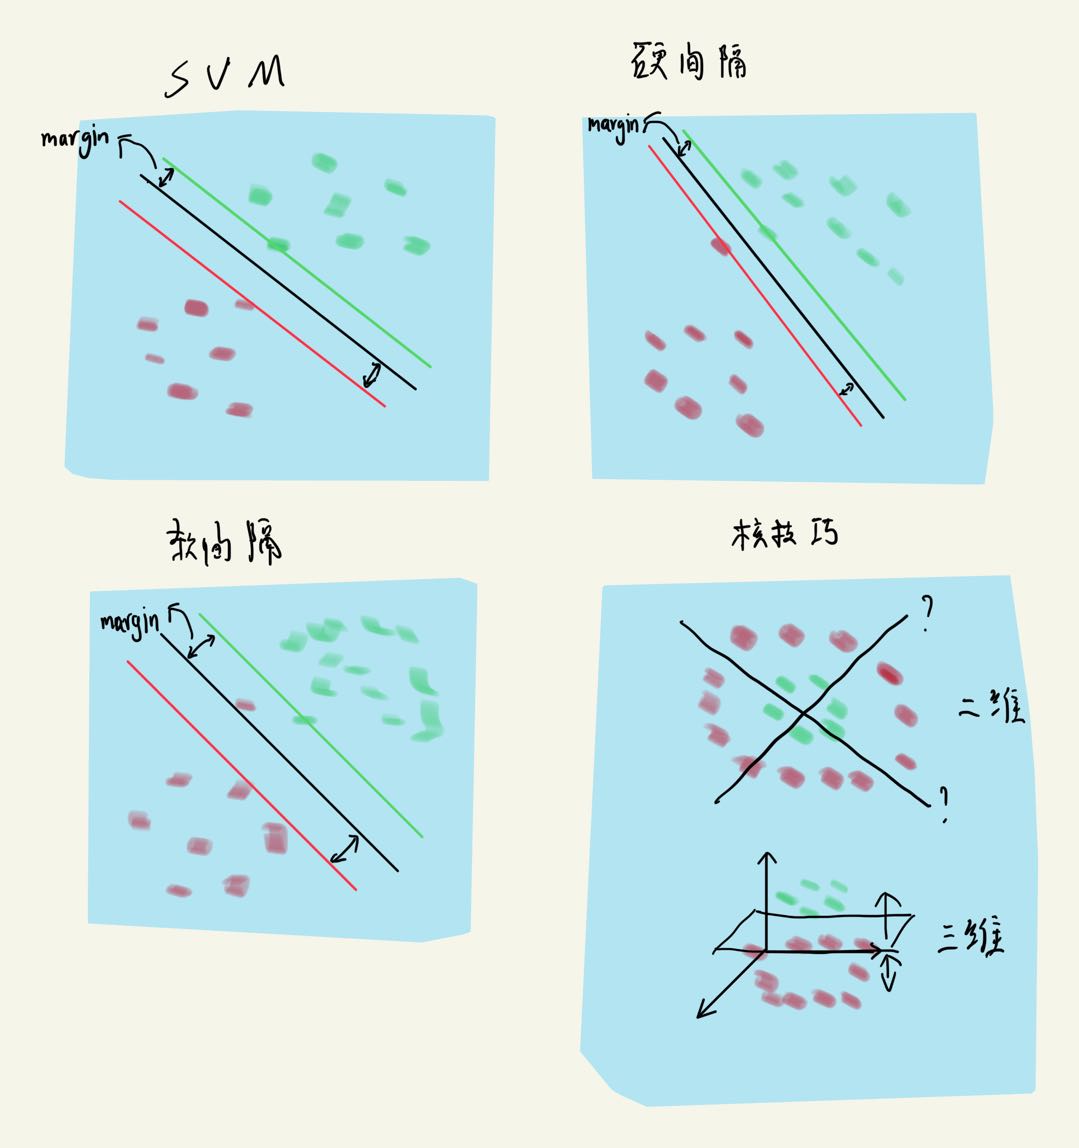 SVM
margin
硬间隔
margin
软间隔
margin
核技巧
?
二维
?
三维